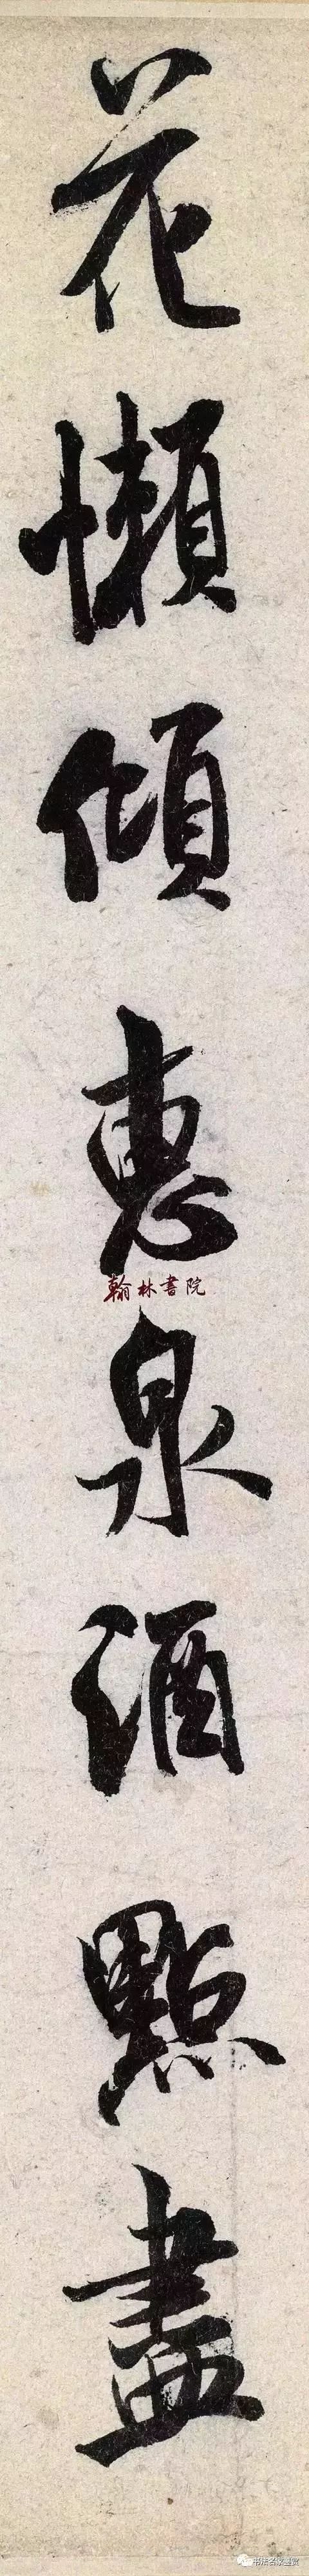 花懶傾惠泉酒點盡
翰林書院
书法名家鉴赏